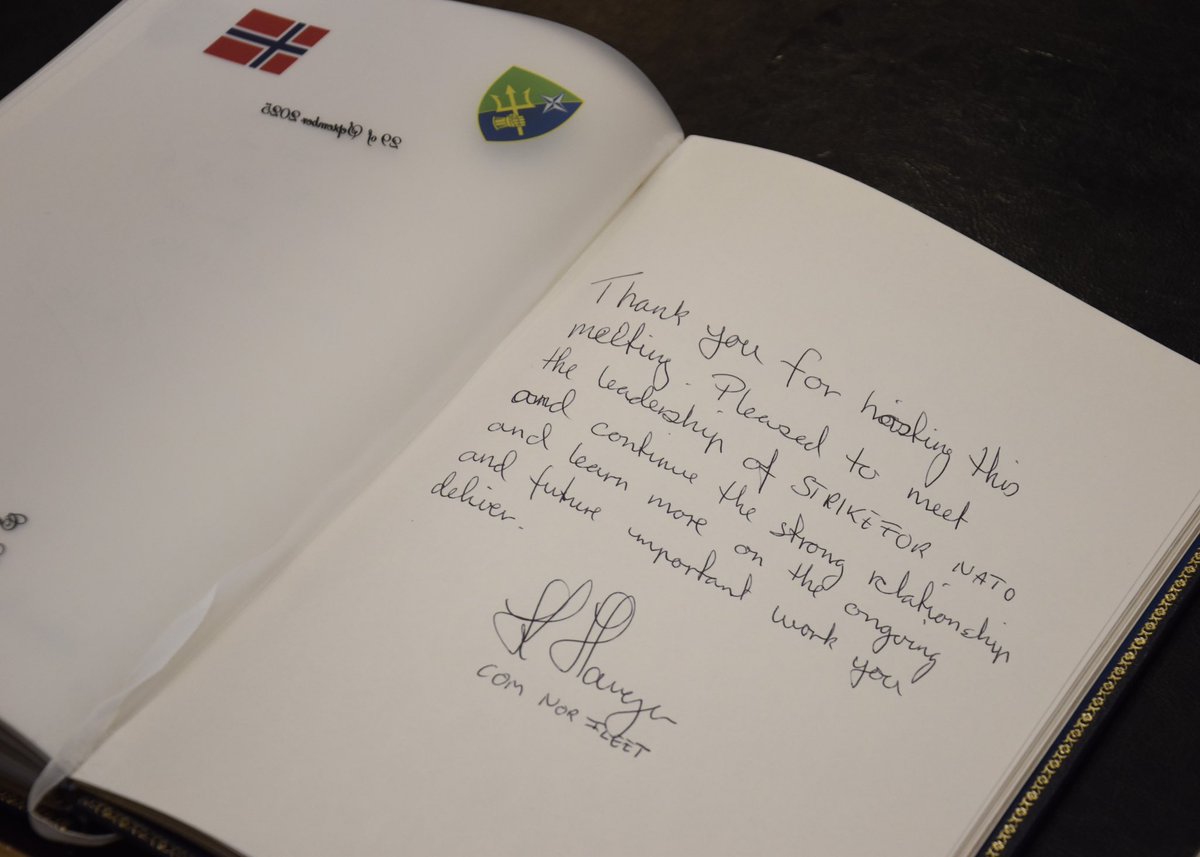 29 of September 2025
Thank you for hosting this
meeting. Pleased to meet
the leadership of STRIKEFOR NATO
and continue the strong relationship
and learn more on the ongoing
and future important work you
deliver.
COM NOR FLEET